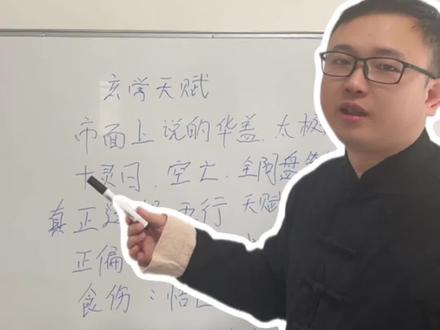 玄学天赋
市面上说的华盖.太极
十灵日.空亡.全阴盘
真正 五行 天赋
正偏
食伤:悟